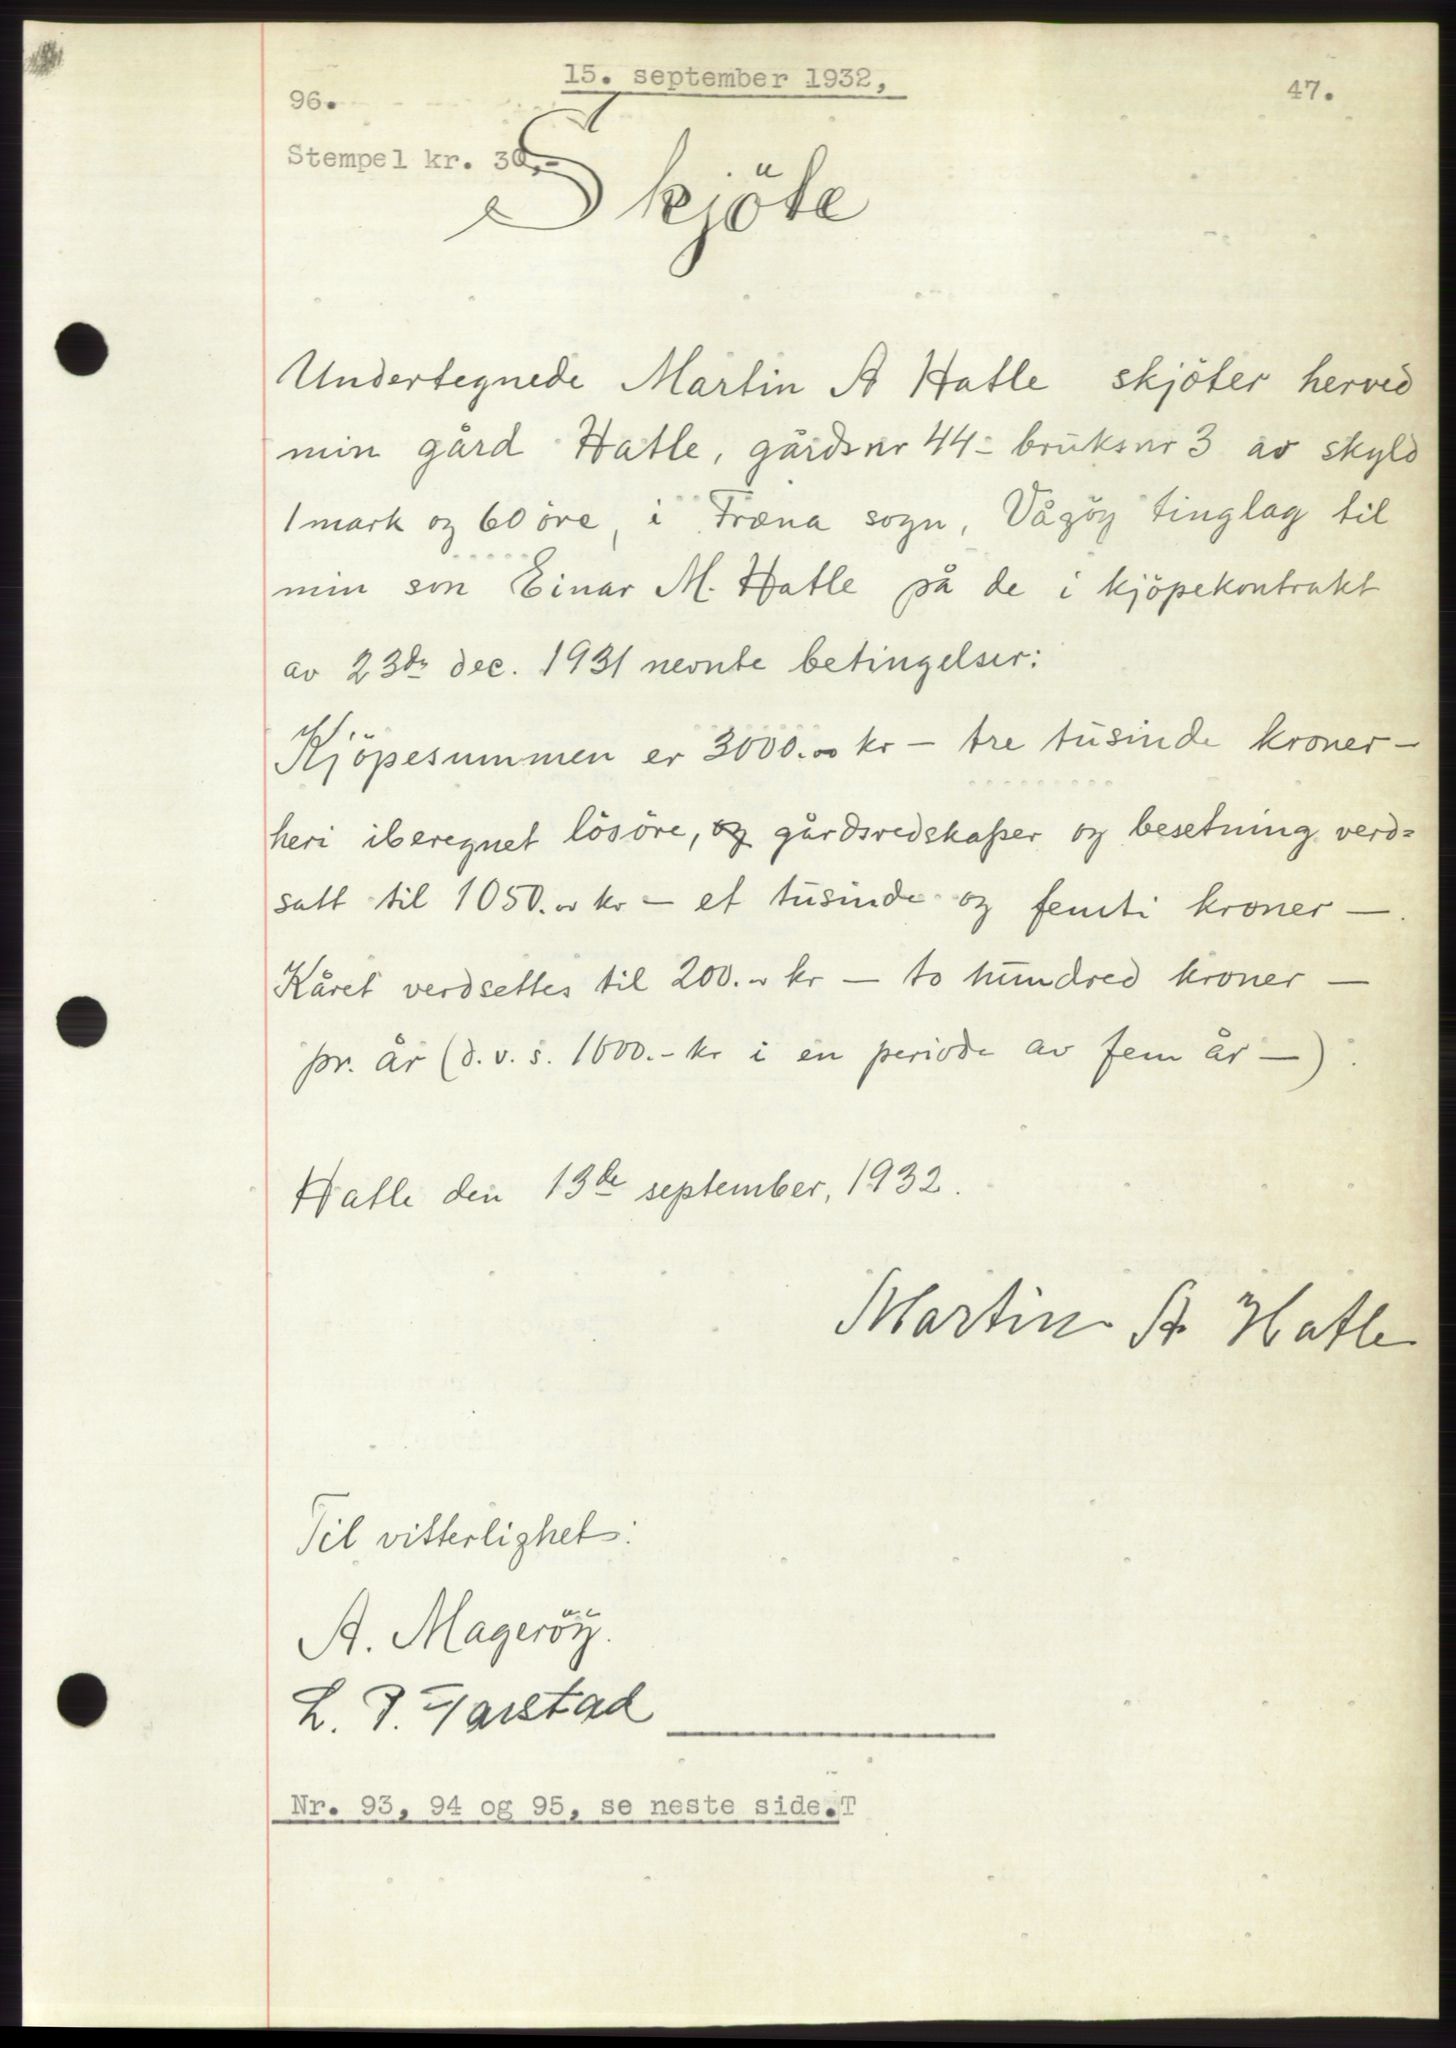 15. september 1932,
47.
96.
Stempel kr. 30,-
Skjöte
Undertegnede Martin A Hatle skjöter herved
min gård Hatle, gårdsnr 44 - bruksnr 3 av skyld
1 mark og 60 öre, i Fræna sogn, Vågöy tinglag til
min sön Einar M. Hatle på de i kjöpekontrakt
av 23de dec. 1931 nevnte betingelser:
Kjöpesummen er 3000.00 kr — tre tusinde kroner —
heri iberegnet lösöre, og gårdsredskaper og besetning verd=
satt til 1050.00 kr — et tusinde og femti kroner —.
Kåret verdsettes til 200.00 kr — to hundred kroner —
pr. år (d.v.s. 1000.- kr i en periode av fem år —).
Hatle den 13de september, 1932.
Martin A Hatle
Til vitterlighet:
A. Mageröy.
L. P. Tarstad
Nr. 93, 94 og 95, se neste side.T